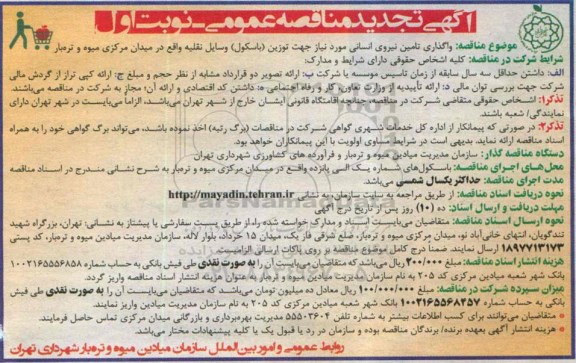 آگهی تجدید مناقصه عمومی - نوبت اول
موضوع مناقصه: واگذاری تامین نیروی انسانی مورد نیاز جهت توزین (باسکول) وسایل نقلیه واقع در میدان مرکزی میوه و تره‌بار
شرایط شرکت در مناقصه: کلیه اشخاص حقوقی دارای شرایط و مدارک:
الف: داشتن حداقل سه سال سابقه از زمان تاسیس موسسه یا شرکت ب: ارائه تصویر دو قرارداد مشابه از نظر حجم و مبلغ ج: ارائه کپی تراز از گردش مالی
شرکت جهت بررسی توان مالی د: ارائه تأییدیه از وزارت تعاون، کار و رفاه اجتماعی ه: داشتن کد اقتصادی و ارائه آن؛ مجاز به شرکت در مناقصه می‌باشند.
تذکر۱: اشخاص حقوقی متقاضی شرکت در مناقصه، چنانچه اقامتگاه قانونی ایشان خارج از شهر تهران می‌باشد، الزاما می‌بایست در شهر تهران دارای
نمایندگی/ شعبه باشند.
تذکر۲: در صورتی که پیمانکار از اداره کل خدمات شهری گواهی شرکت در مناقصات (برگ رتبه) اخذ نموده باشد، می‌تواند برگ گواهی خود را به همراه
اسناد مناقصه ارائه نماید. بدیهی است در شرایط مساوی اولویت با این پیمانکاران خواهد بود.
دستگاه مناقصه گذار: سازمان مدیریت میادین میوه و تره‌بار و فرآورده های کشاورزی شهرداری تهران
محل‌های اجرای مناقصه: باسکول‌های شماره یک الی پانزده واقع در میدان مرکزی میوه و تره‌بار به شرح نشانی مندرج در اسناد مناقصه
مدت اجرای مناقصه: حداکثر یکسال شمسی می‌باشد.
نحوه دریافت اسناد مناقصه: از طریق مراجعه به سایت سازمان به نشانی http://mayadin.tehran.ir
مهلت دریافت و ارسال اسناد: ده (۱۰) روز پس از تاریخ درج آگهی
نحوه ارسال اسناد مناقصه: متقاضیان می‌بایست اسناد و مدارک خواسته شده را از طریق پست سفارشی یا پیشتاز به نشانی: تهران، بزرگراه شهید
تندگویان، انتهای خانی‌آباد نو، میدان مرکزی میوه و تره‌بار، ضلع شرقی فاز یک، میدان ۱۵ خرداد، بلوار لاله، سازمان مدیریت میادین میوه و تره‌بار، کد پستی
۱۸۹۷۷۱۳۱۷۳ ارسال نمایند. ضمنا درج کامل موضوع مناقصه بر روی پاکات ارسالی الزامیست.
هزینه انتشار اسناد مناقصه: مبلغ ۳۰۰/۰۰۰ ریال می‌باشد که متقاضیان می‌بایست آن را به صورت نقدی طی فیش بانکی به حساب شماره ۱۰۰۲۱۶۵۵۵۶۸۵۸
بانک شهر شعبه میادین مرکزی کد ۲۰۵ به نام سازمان مدیریت میادین میوه و تره‌بار به عنوان هزینه انتشار اسناد مناقصه واریز گردد.
میزان سپرده شرکت در مناقصه: مبلغ ۱۰۰/۰۰۰/۰۰۰ ریال معادل ده میلیون تومان می‌باشد که متقاضیان می‌بایست آن را به صورت نقدی طی فیش
بانکی به حساب شماره ۱۰۰۲۱۶۵۵۶۸۲۵۷ بانک شهر شعبه میادین مرکزی کد ۲۰۵ به نام سازمان مدیریت میادین میوه و تره‌بار واریز نمایند.
* متقاضیان می‌توانند برای کسب اطلاعات بیشتر به شماره تلفن ۵۵۵۰۳۶۰۴ مدیریت بهره‌برداری و بازرگانی میدان مرکزی تماس حاصل فرمایند.
* هزینه انتشار آگهی بعهده برنده/ برندگان مناقصه بوده و سازمان در رد یا قبول یک یا کلیه پیشنهادات مختار می‌باشد.
روابط عمومی و امور بین الملل سازمان میادین میوه و تره‌بار شهرداری تهران